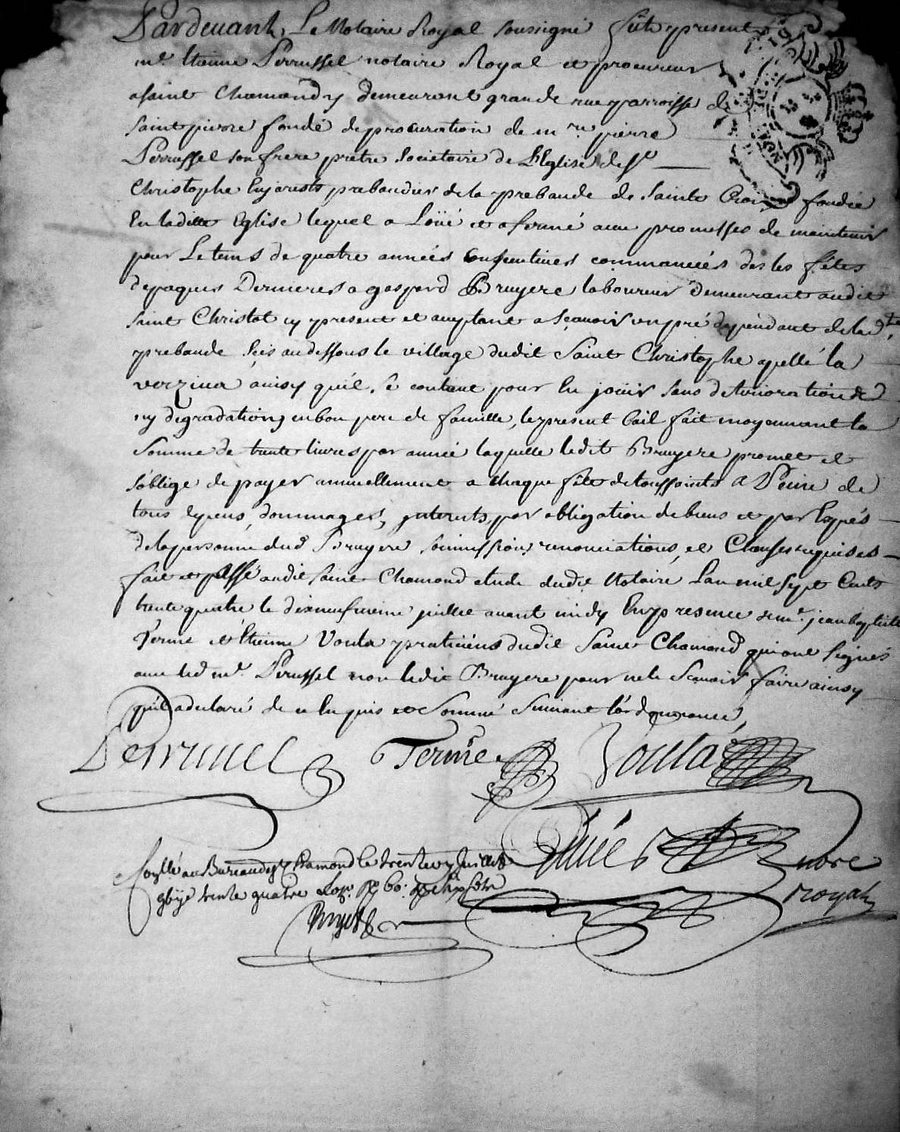 Pardevant Le Notaire Royal soussigné fut present
mre Etienne Perrussel notaire Royal et procureur
a saint Chamond y demeurent grande rue parroisse de
saint pierre fondé de procuration de mre pierre
Perrussel son frere prètre societaire de L'Eglise de St
Christophe En jarests prebandier de la prebande de Sainte fondée
En laditte Eglise lequel a Loüé et afermé avec promesses de maintenir
pour Le tems de quatre années consecutives commancées des les fêtes
de paques Dernieres a gaspard Bruyere laboureur demeurant audit
saint Christot cy present et aceptant a sçavoir un pré dependant de la dte
prebande sçis au dessous le village dudit Saint Christophe apellé la
verzina ainsy quil se contient pour En joüir sans deterioration
ny degradation en bon pere de famille, le present bail fait moyennant la
somme de trente livres par année laquelle ledit Bruyere promet et
s'oblige de payer annuellement a chaque fête de toussaints a Peine de
tous depens, dommages, interests, par obligation de biens et par Exprés
de la personne dud Bruyere soumissions renonciations, et Clauses requises
fait et passé audit saint Chamond etude dudit Notaire L'an mil sept Cents
trente quatre le dixneufvieme juillet avant midy En presence de mre jean baptiste
Terme et Etienne Vouta praticiens dudit Saint Chamond qui ont signés
avec led mre Perussel non ledit Bruyere pour ne le sçavoir faire ainsy
quil a declaré de ce Enquis et sommé suivant l'ordonnance,
Perrussel Terme Vouta
nore
royal
Conllé au Bureau de St Chamond le trente juillet
gbije trente quatre